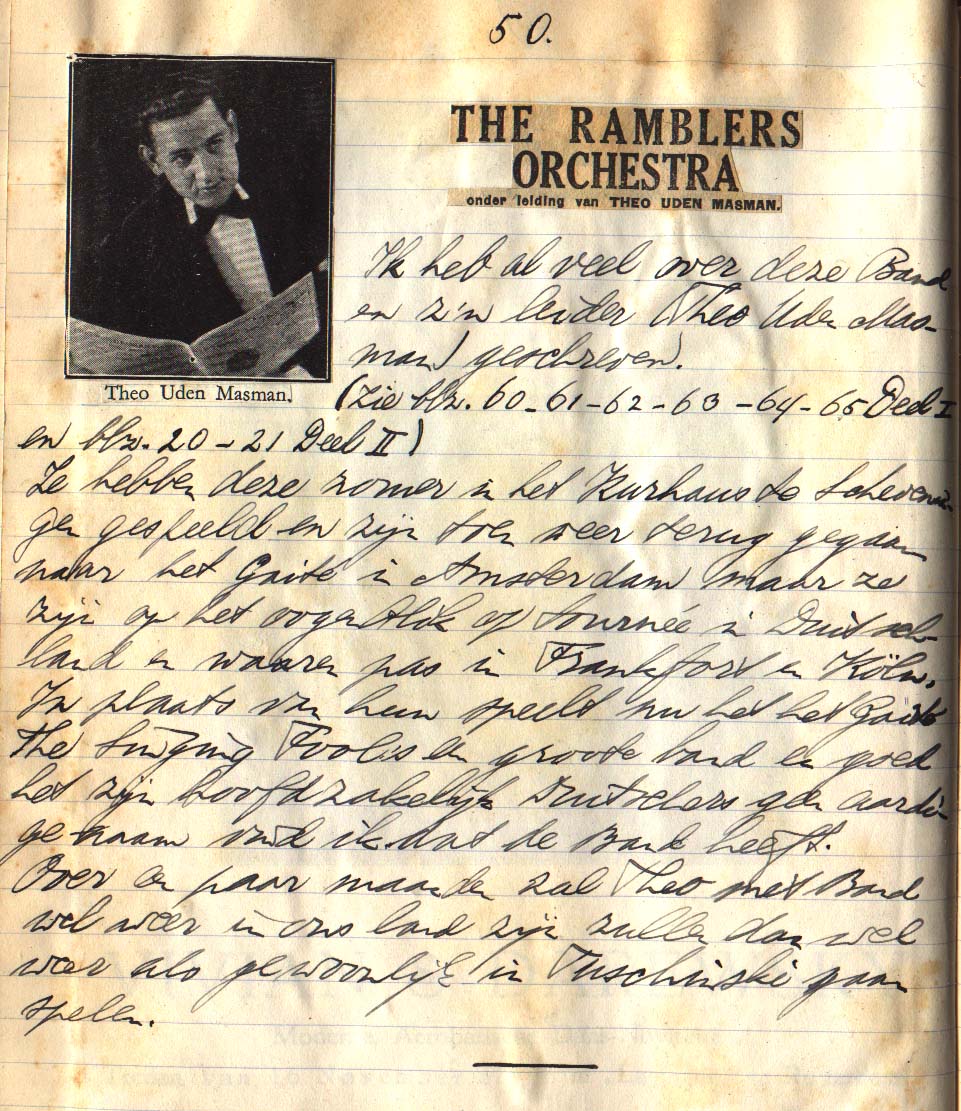 50.
THE RAMBLERS
ORCHESTRA
onder leiding van THEO UDEN MASMAN.
Theo Uden Masman.
Ik heb al veel over deze Band
en z'n leider (Theo Uden Mas-
man) geschreven.
(Zie blz. 60-61-62-63-64-65 Deel I
en blz. 20-21 Deel II)
Ze hebben deze zomer in het Kurhaus te Schevenin
gen gespeeld en zijn toen weer terug gegaan
naar het Gaite in Amsterdam maar ze
zijn op het oogenblik op tournée in Duitsch-
land en waaren pas in Frankfort en Köln.
In plaats van hun speelt nu het het Gaite
The Singing Fools een groote band en goed
het zijn hoofdzakelijk Duitschers aardi-
ge naam vind ik dat de Band heeft.
Over en paar maanden zal Theo met Band
wel weer in ons land zijn zullen dan wel
weer als gewoonlijk in Tuschinski gaan
spelen.